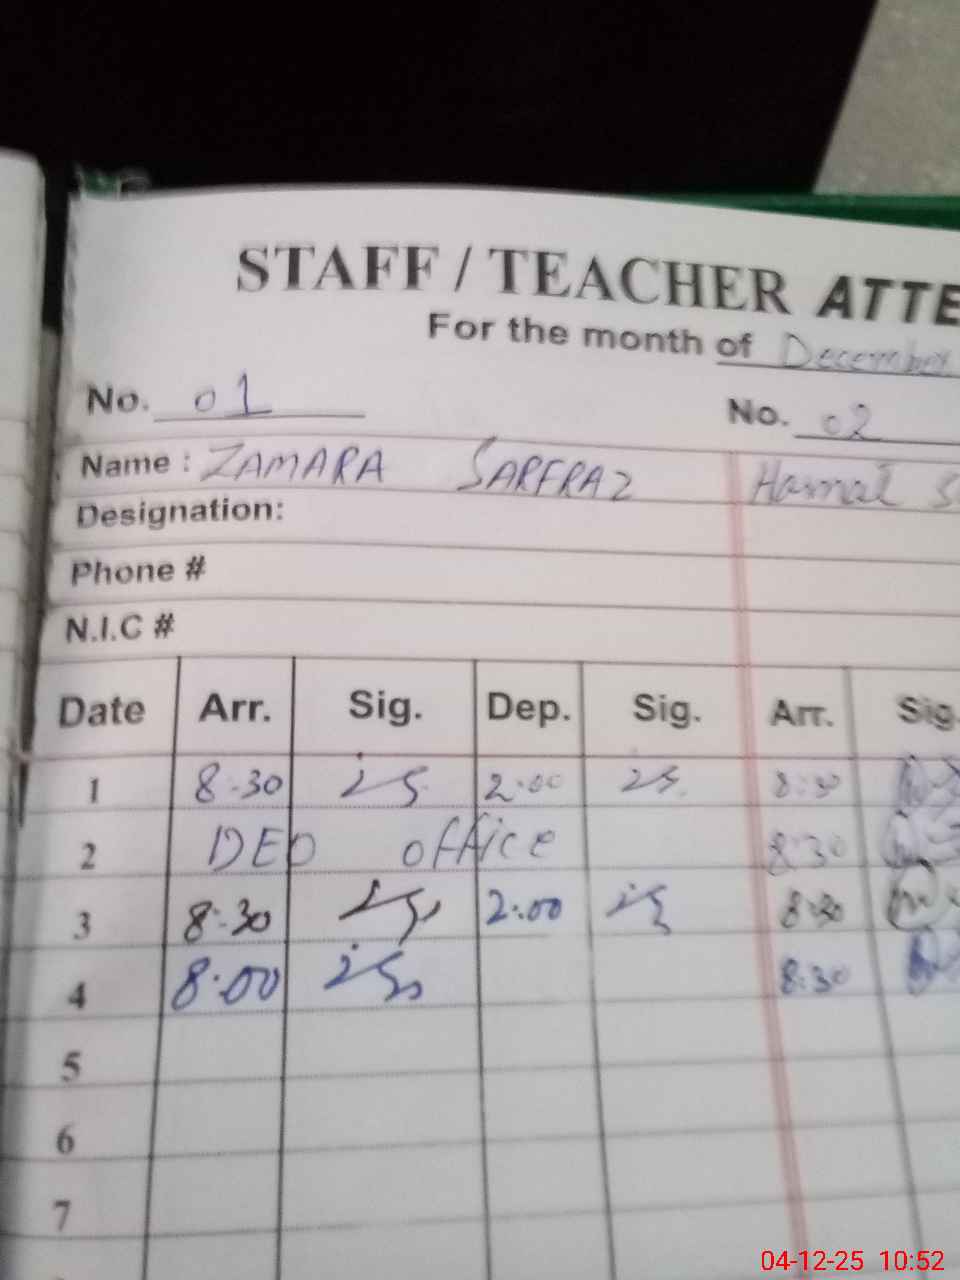 STAFF / TEACHER ATTE
For the month of December
No. 01 No. 02
Name : ZAMARA SARFRAZ Hamal S
Designation:
Phone #
N.I.C #
Date Arr. Sig. Dep. Sig. Arr. Sig.
1 8:30 2:00 8:30
2 DEO office 8:30
3 8:30 2:00 8:30
4 8:00 8:30
5
6
7
04-12-25 10:52